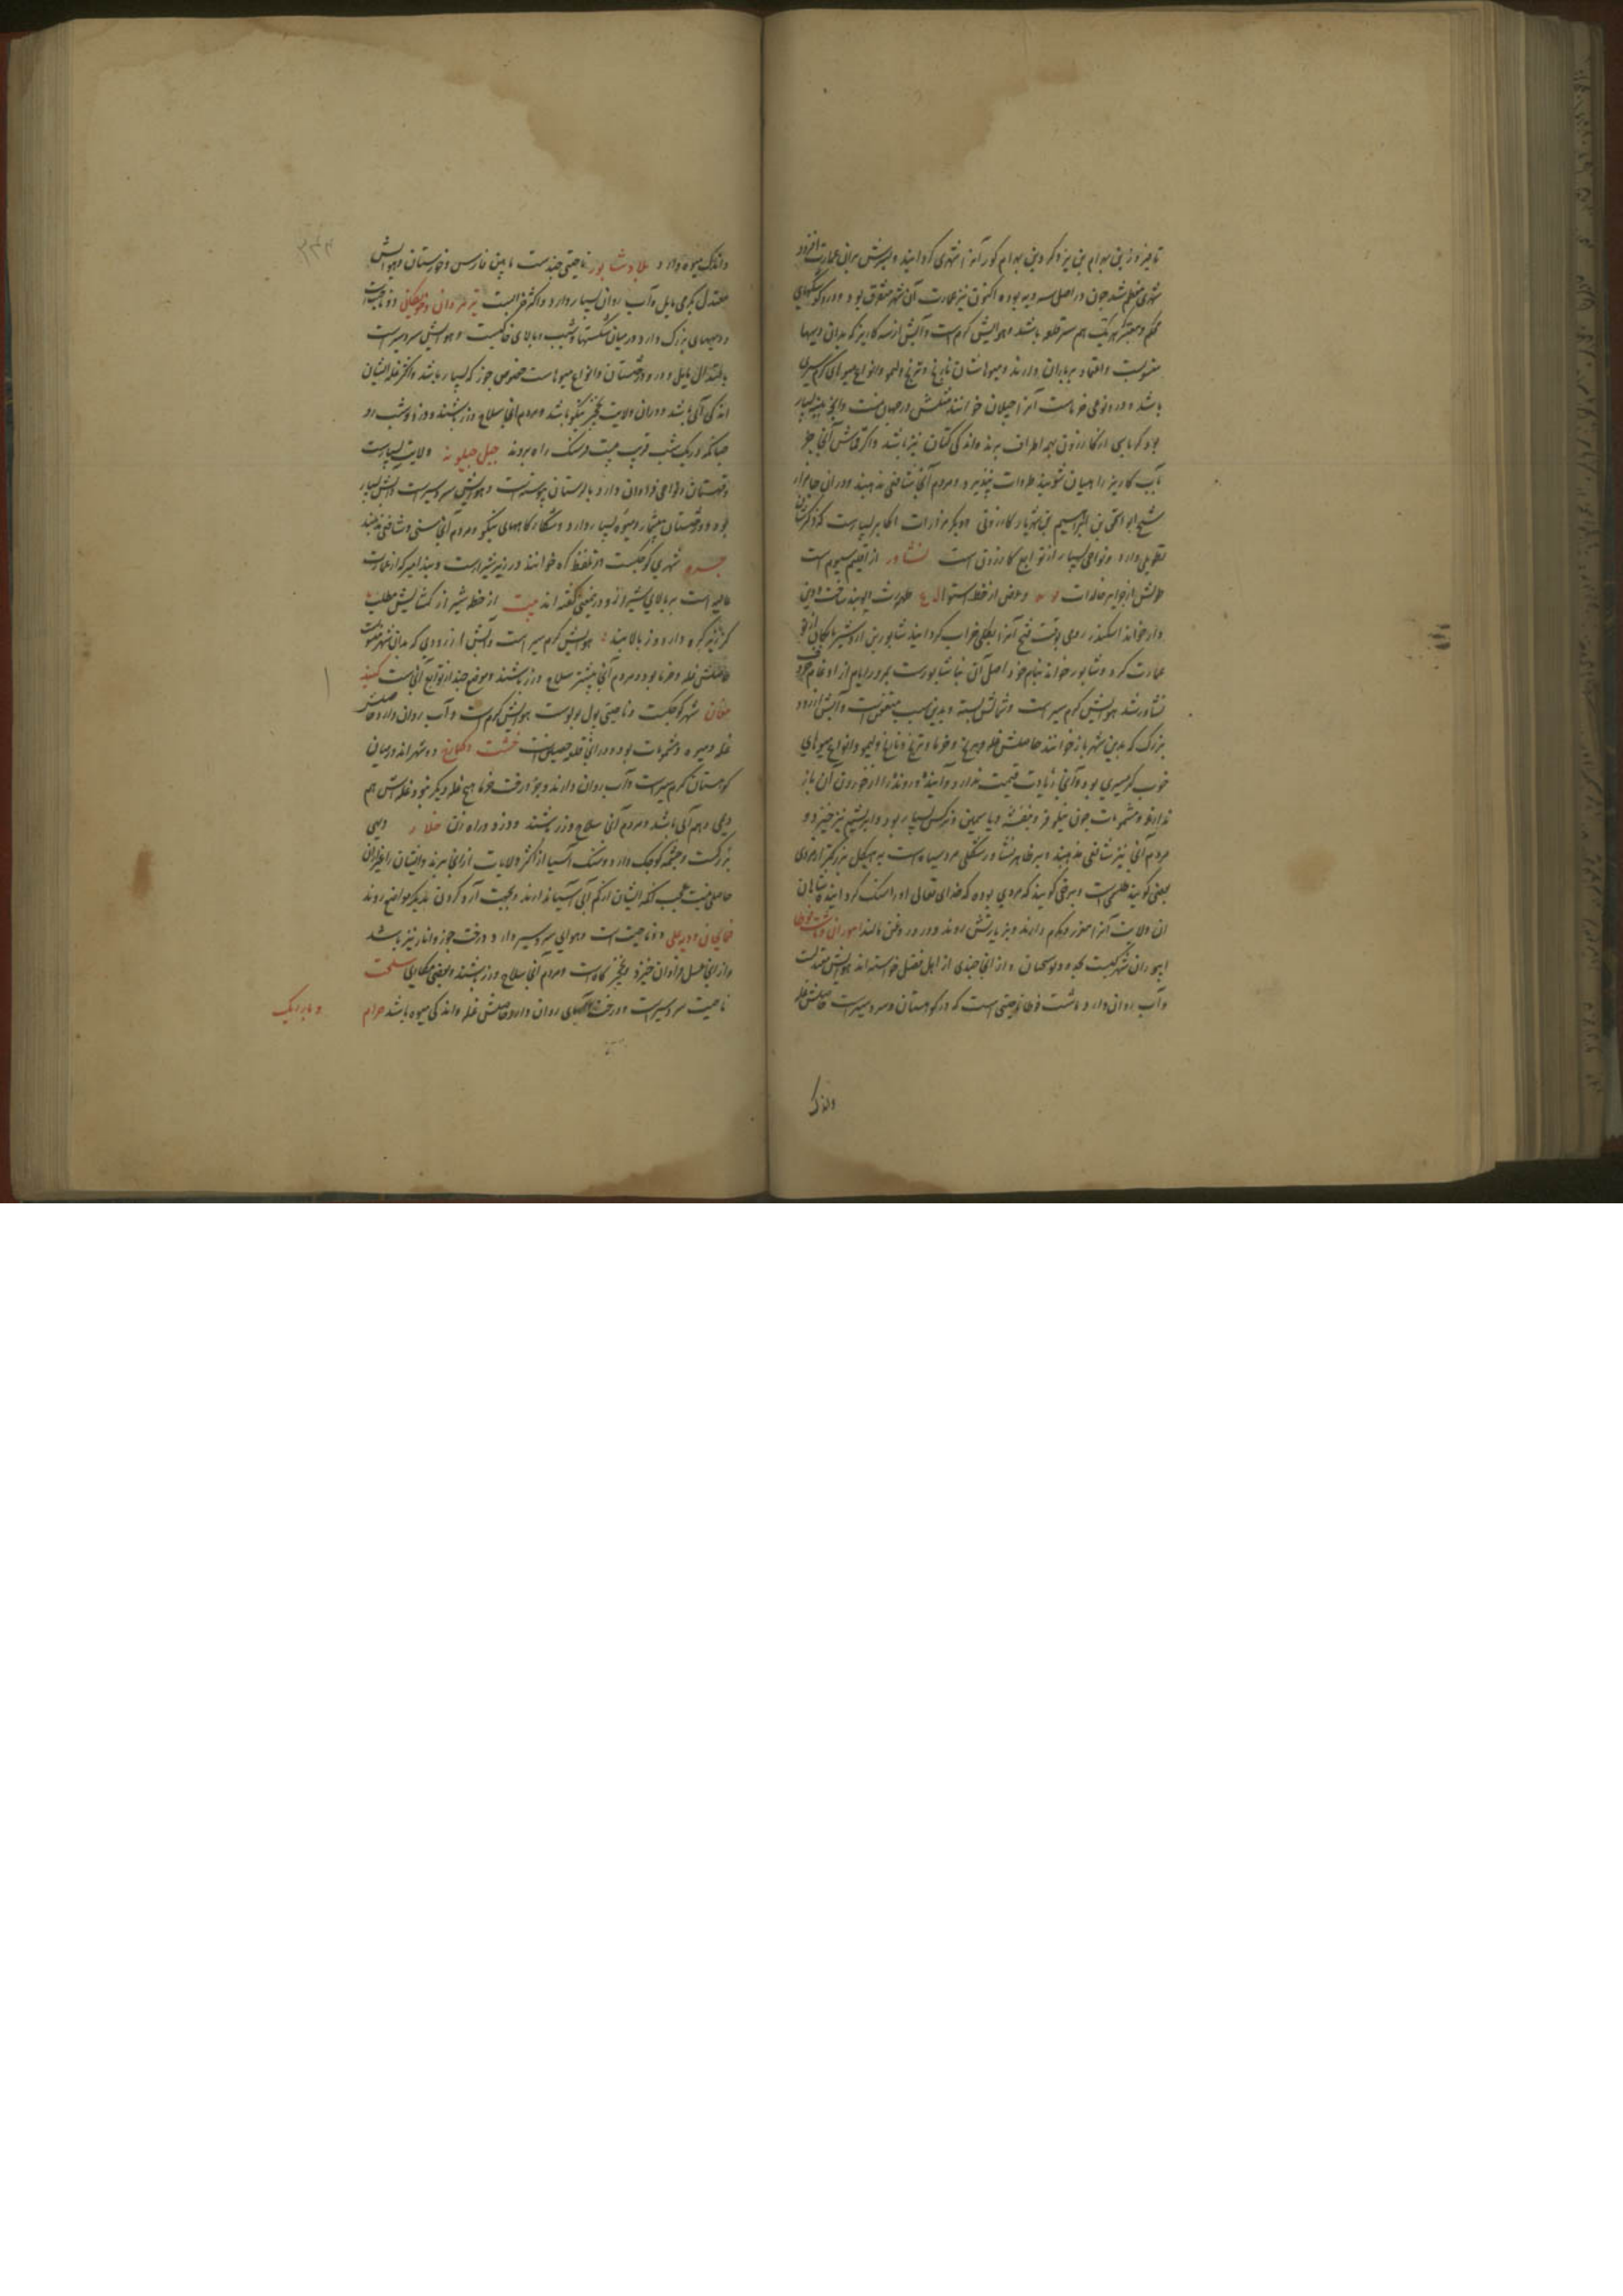 تا فیروز بن بهرام بن یزدگرد بن بهرام کور آنرا شهری گردانید و پسرش بران عمارت افزود
شهری عظیم شد چون در اصل سه دیه بوده اکنون نیز عمارت آن شهر متفرق بود و درو کوشکهای
محکم و معتبر که هر یک هم سر قلعه باشد و هوایش گرم است و آبش از سه کاریز که بدان دیهها
منسوبست و اعتماد بر باران دارند و میوهاشان نارنج و ترنج و لیمو و انواع میوهای گرمسیری
باشد و درو نوعی خرماست آنرا جیلان خوانند مثلش در جهان نیست و آنجا پنبه بسیار
بود کرباس از کازرون بهمه اطراف برند و اندکی کتان نیز باشد و اگر قماش آنجا جز
بآب کاریز راهبان شویند طراوت نپذیرد و مردم آنجا شافعی مذهبند و در آنجا مزار
شیخ ابو اسحق بن ابراهیم بن شهریار کازرونی و دیگر مزارات اکابر بسیارست که ذکرشان
تطویلی دارد و نواحی بسیار از توابع کازرون است نشاور از اقلیم سیوم است
طولش از جزایر خالدات و عرض از خط استوا طهمورث دیوبند ساخت و دین
دار خواند اسکندر رومی بوقت فتح آنرا بکلی خراب گردانید شاپور بن اردشیر بابکان از نو
عمارت کرد و شاپور خواند بنام خود اصل آن بنا شاپورست بمرور ایام از ادغام حروف
نشاور شد هوایش گرمسیر است و شمالش بسته و بدین سبب متعفن است و آبش از رود
بزرگ که بدین شهر باز خوانند حاصلش غله و برنج و خرما و ترنج و نارنج و لیمو و انواع میوهای
خوب گرمسیری بود و آنجا زیادت قیمت ندارد و آینده و رونده را از خوردن آن باز
ندارند و مشمومات چون نیلوفر و بنفشه و یاسمین و نرگس بسیار بود و ابریشم نیز خیزد و
مردم آنجا نیز شافعی مذهبند و بر ظاهر نشاور شکل مرد سیاه است به هیکل بزرگتر از مردی
بعضی گویند طلسمی است و برخی گویند که مردی بوده که خدای تعالی او را سنگ گردانید پادشاهان
ان ولایت آنرا معزز و مکرم دارند و بزیارتش روند و در وی روغن مالند امبوران و باشت قوطا
امبوران شهرکیست و از آنجا چندی از اهل فضل خواسته اند هوایش معتدلست
و آب روان دارد و باشت قوطا ناحیتی است که در کوهستان و سردسیرست حاصلش غله
واندک
واندک میوه دارد و بلاد شاپور ناحیتی چندست مابین فارس و خوزستان و هوایش
معتدل بگرمی مایل و آب روان بسیار دارد و اکثر خرابست تیر مردان و جویکان دو ناحیتست
و دیههای بزرگ دارد و در میان شکستها و نشیب و بالای خاکیست و هوایش سردسیرست
باعتدال مایل و درو درختستان و انواع میوهاست خصوص جوز که بسیار باشد و اکثر غله ایشان
اندکی آبی باشد و در ان ولایت نخجیر نیکو باشد و مردم آنجا سلاح ورز باشند و دزد و شب رو
چنانکه در یک شب قریب بیست فرسنگ راه بروند جبل جیلویه ولایتی بسیارست
و قهستان و نواحی فراوان دارد بلرستان پیوسته است و هوایش سردسیرست و آبش بسیار
بود و درختستان بیشمار و میوه بسیار دارد و شکارگاههای نیکو و مردم آنجا سنی و شافعی مذهبند
جره شهری کوچکست در تلفظ گره خوانند در زیر شیرازست
عالیه است بر بالای شیراز و درین معنی گفته اند بیت از خط شیراز گشایش مطلب
کز زیر گره دارد و ز بالا بند هوایش گرمسیر است و آبش از رودی که بدان شهر منسوبست
حاصلش غله و خرما بود و مردم آنجا بیشتر سلاح ورز باشند و موضع چند از توابع آنجاست گنبد
ملغان شهرکوچکست و ناحیتی پول بولوست هوایش گرم است و آب روان دارد حاصلش
غله و میوه و مشمومات بود و در آنجا قلعه حصینست خشت و کمارج دو شهر اند در میان
کوهستان گرمسیرست و آب روان دارند و بجز درخت خرما هیچ غله دیگر نبود و غله اش هم
دیمی و هم آبی باشد و مردم آنجا سلاح ورز باشند و دزد و راه زن خلار دیهی
بزرگست و چشمه کوچک دارد و سنگ آسیا از اکثر ولایات از آنجا برند و ایشان را بغیر از آن
حاصلی نیست عجب آنکه ایشان از کم آبی آسیا ندارند و بجهت آرد کردن بدیگر مواضع روند
خمایجان و دیه علی دو ناحیت است و هوای سردسیر دارد و درخت جوز و انار نیز باشد
و از آنجا عسل فراوان خیزد و نخجیرگاهست و مردم آنجا سلاح ورز باشند و بعضی مکاری
ناحیت سردسیرست و درختها و آبهای روان دارد حاصلش غله و اندکی میوه باشد صرام
و بازرنک